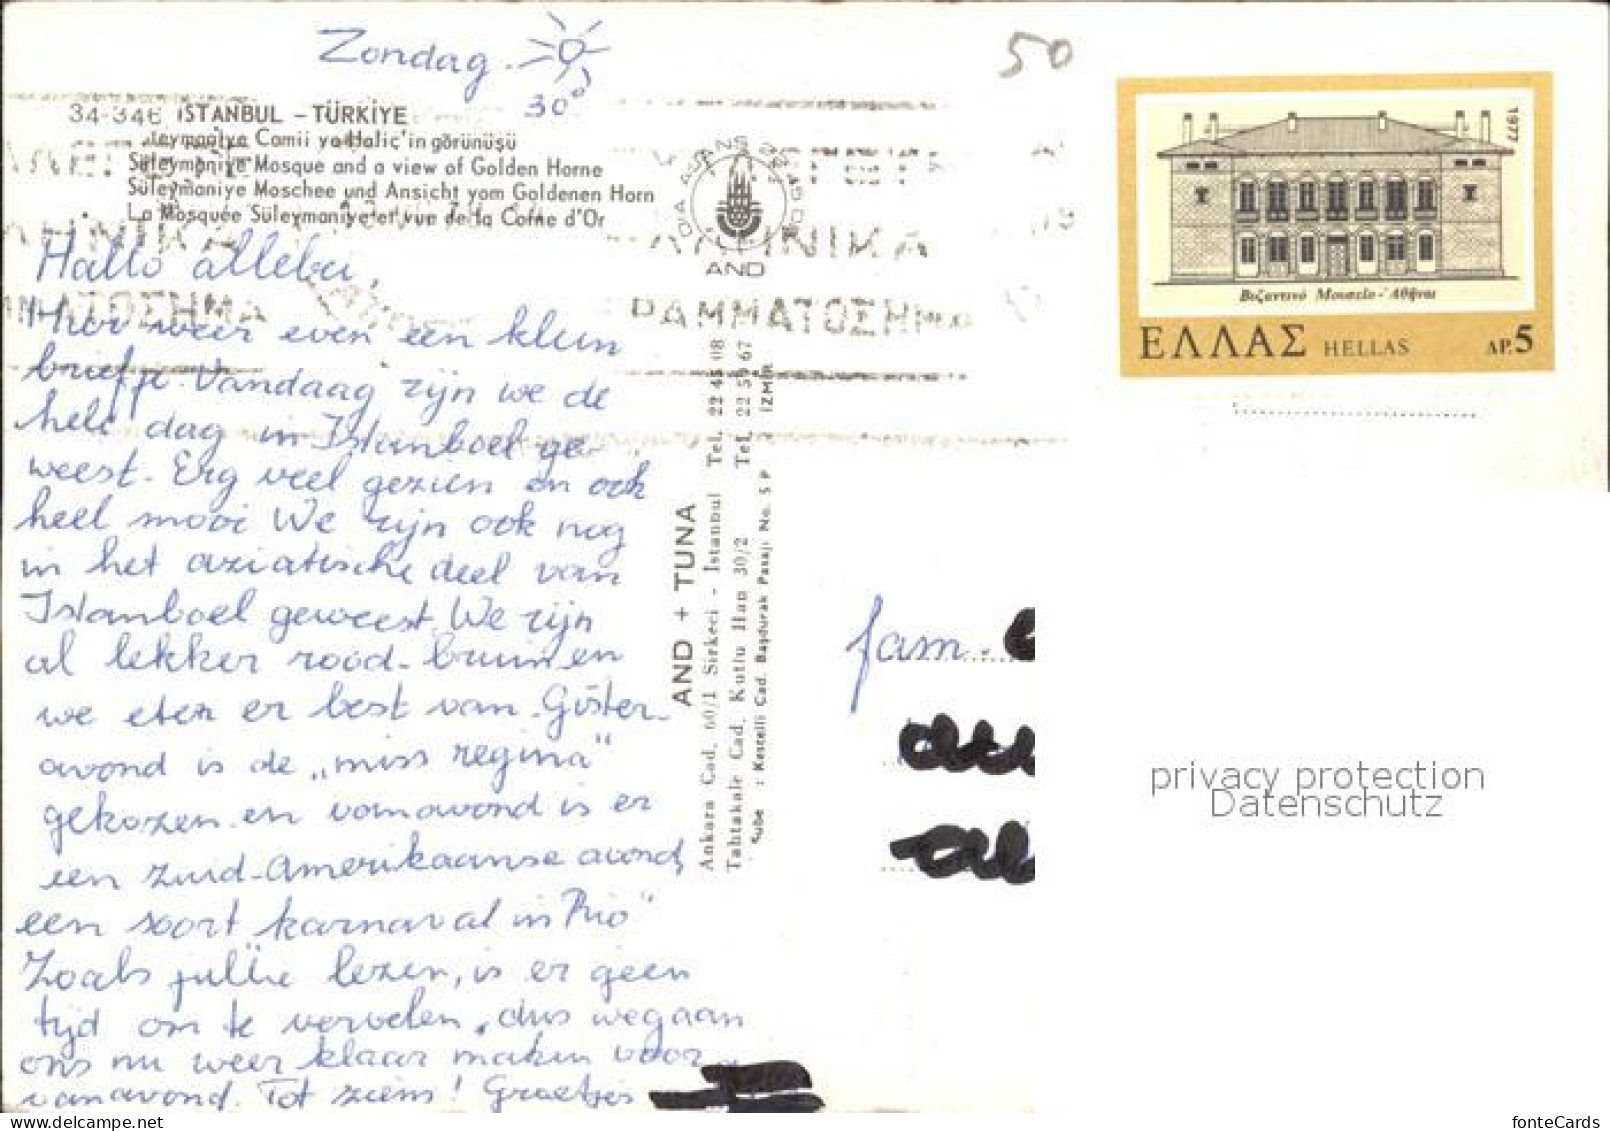 Zondag.
30°
50
34-346 İSTANBUL - TÜRKİYE
Camii ve Haliç'in görünüşü
Süleymaniye Mosque and a view of Golden Horne
Süleymaniye Moschee und Ansicht vom Goldenen Horn
La Mosquée Süleymaniye et vue de la Corne d'Or
AND
ΡΑΜΜΑΤΟΣΗΜΑ
1977
Βυζαντινό Μουσείο - Ἀθῆναι
ΕΛΛΑΣ HELLAS ΔΡ.5
Hallo allebei,
Hier weer even een klein
briefje. Vandaag zijn we de
hele dag in Istanboel ge-
weest. Erg veel gezien en ook
heel mooi We zijn ook nog
in het aziatische deel van
Istanboel geweest. We zijn
al lekker rood-bruin en
we eten er best van. Gister-
avond is de „miss regina"
gekozen en vanavond is er
een zuid-Amerikaanse avond,
een soort karnaval in Rio"
Zoals jullie lezen, is er geen
tijd om te vervelen, dus we gaan
ons nu weer klaar maken voor
vanavond. Tot ziens! Groetjes
AND + TUNA
Ankara Cad. 60/1 Sirkeci - Istanbul Tel. 22 45 08
Tahtakale Cad. Kutlu Han 30/2 Tel. 22 59 67
Şube : Kestelli Cad. Başdurak Pasajı No. 5 P İZMİR
fam.
privacy protection
Datenschutz
fonteCards